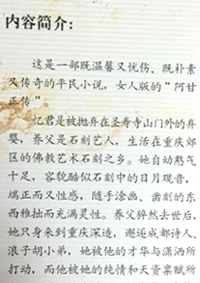 内容简介：
这是一部既温馨又忧伤、既朴素
又传奇的平民小说，女人版的“阿甘
正传”。
忆君是被抛弃在圣寿寺山门外的弃
婴，养父是石刻艺人，生活在重庆郊
区的佛教艺术石刻之乡。她自幼热气
十足，容貌酷似石刻中的日月观音，
端正而又性感，随手涂画、凿刻的东
西稚拙而充满灵性。养父猝然去世后，
她只身来到重庆深造，邂逅成都诗人、
浪子胡小弟，她被他的才华与潇洒所
打动，而他被她的纯情和天资禀赋所